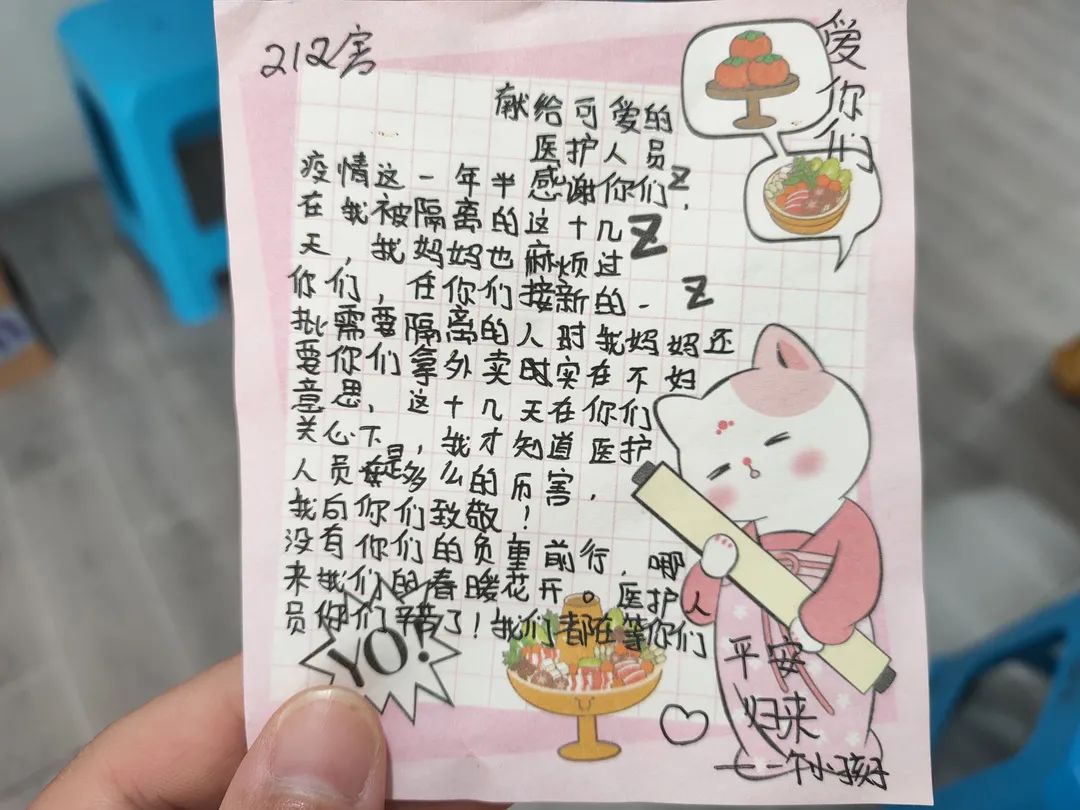 212害
爱你们
献给可爱的
医护人员
疫情这一年半感谢你们,
Z
在我被隔离的这十几
Z
天,我妈妈也麻烦过
你们,在你们接新的一
Z
批需要隔离的人时我妈妈还
要你们拿外卖时实在不好
意思,这十几天在你们
关心下,我才知道医护
人员是多么的历害,
我向你们致敬!
没有你们的负重前行,哪
来我们的春暖花开。医护人
员你们辛苦了!我们都在等你们
YO!
平安
归来
——一个小孩子